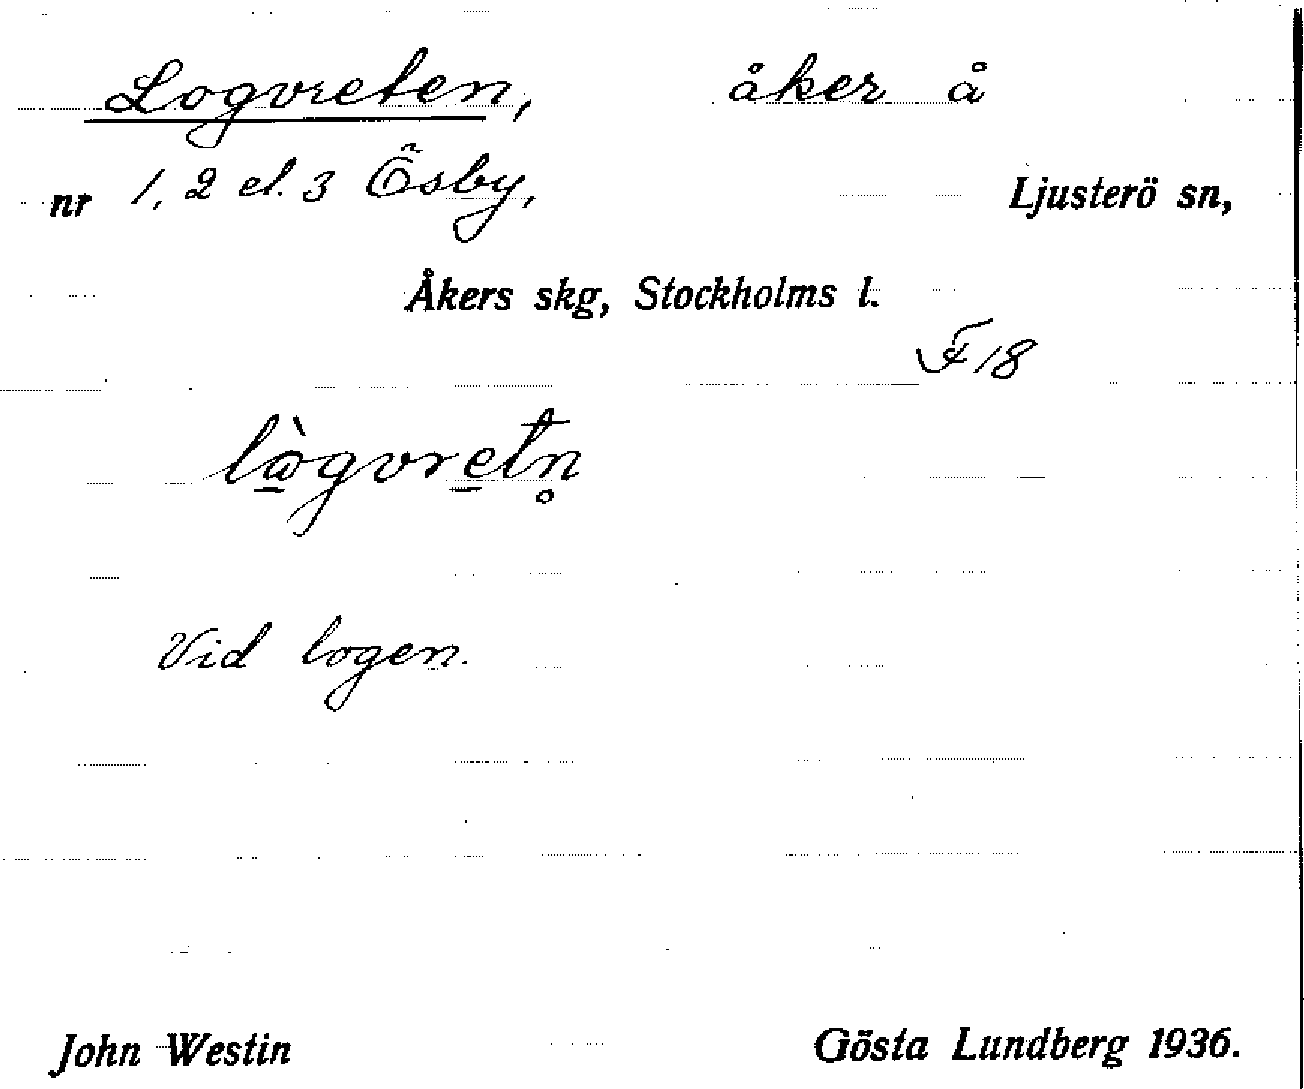 Logvreten, åker å
nr 1, 2 el. 3 Ösby, Ljusterö sn,
Åkers skg, Stockholms l.
F 18
lògvretn̥
Vid logen.
John Westin Gösta Lundberg 1936.